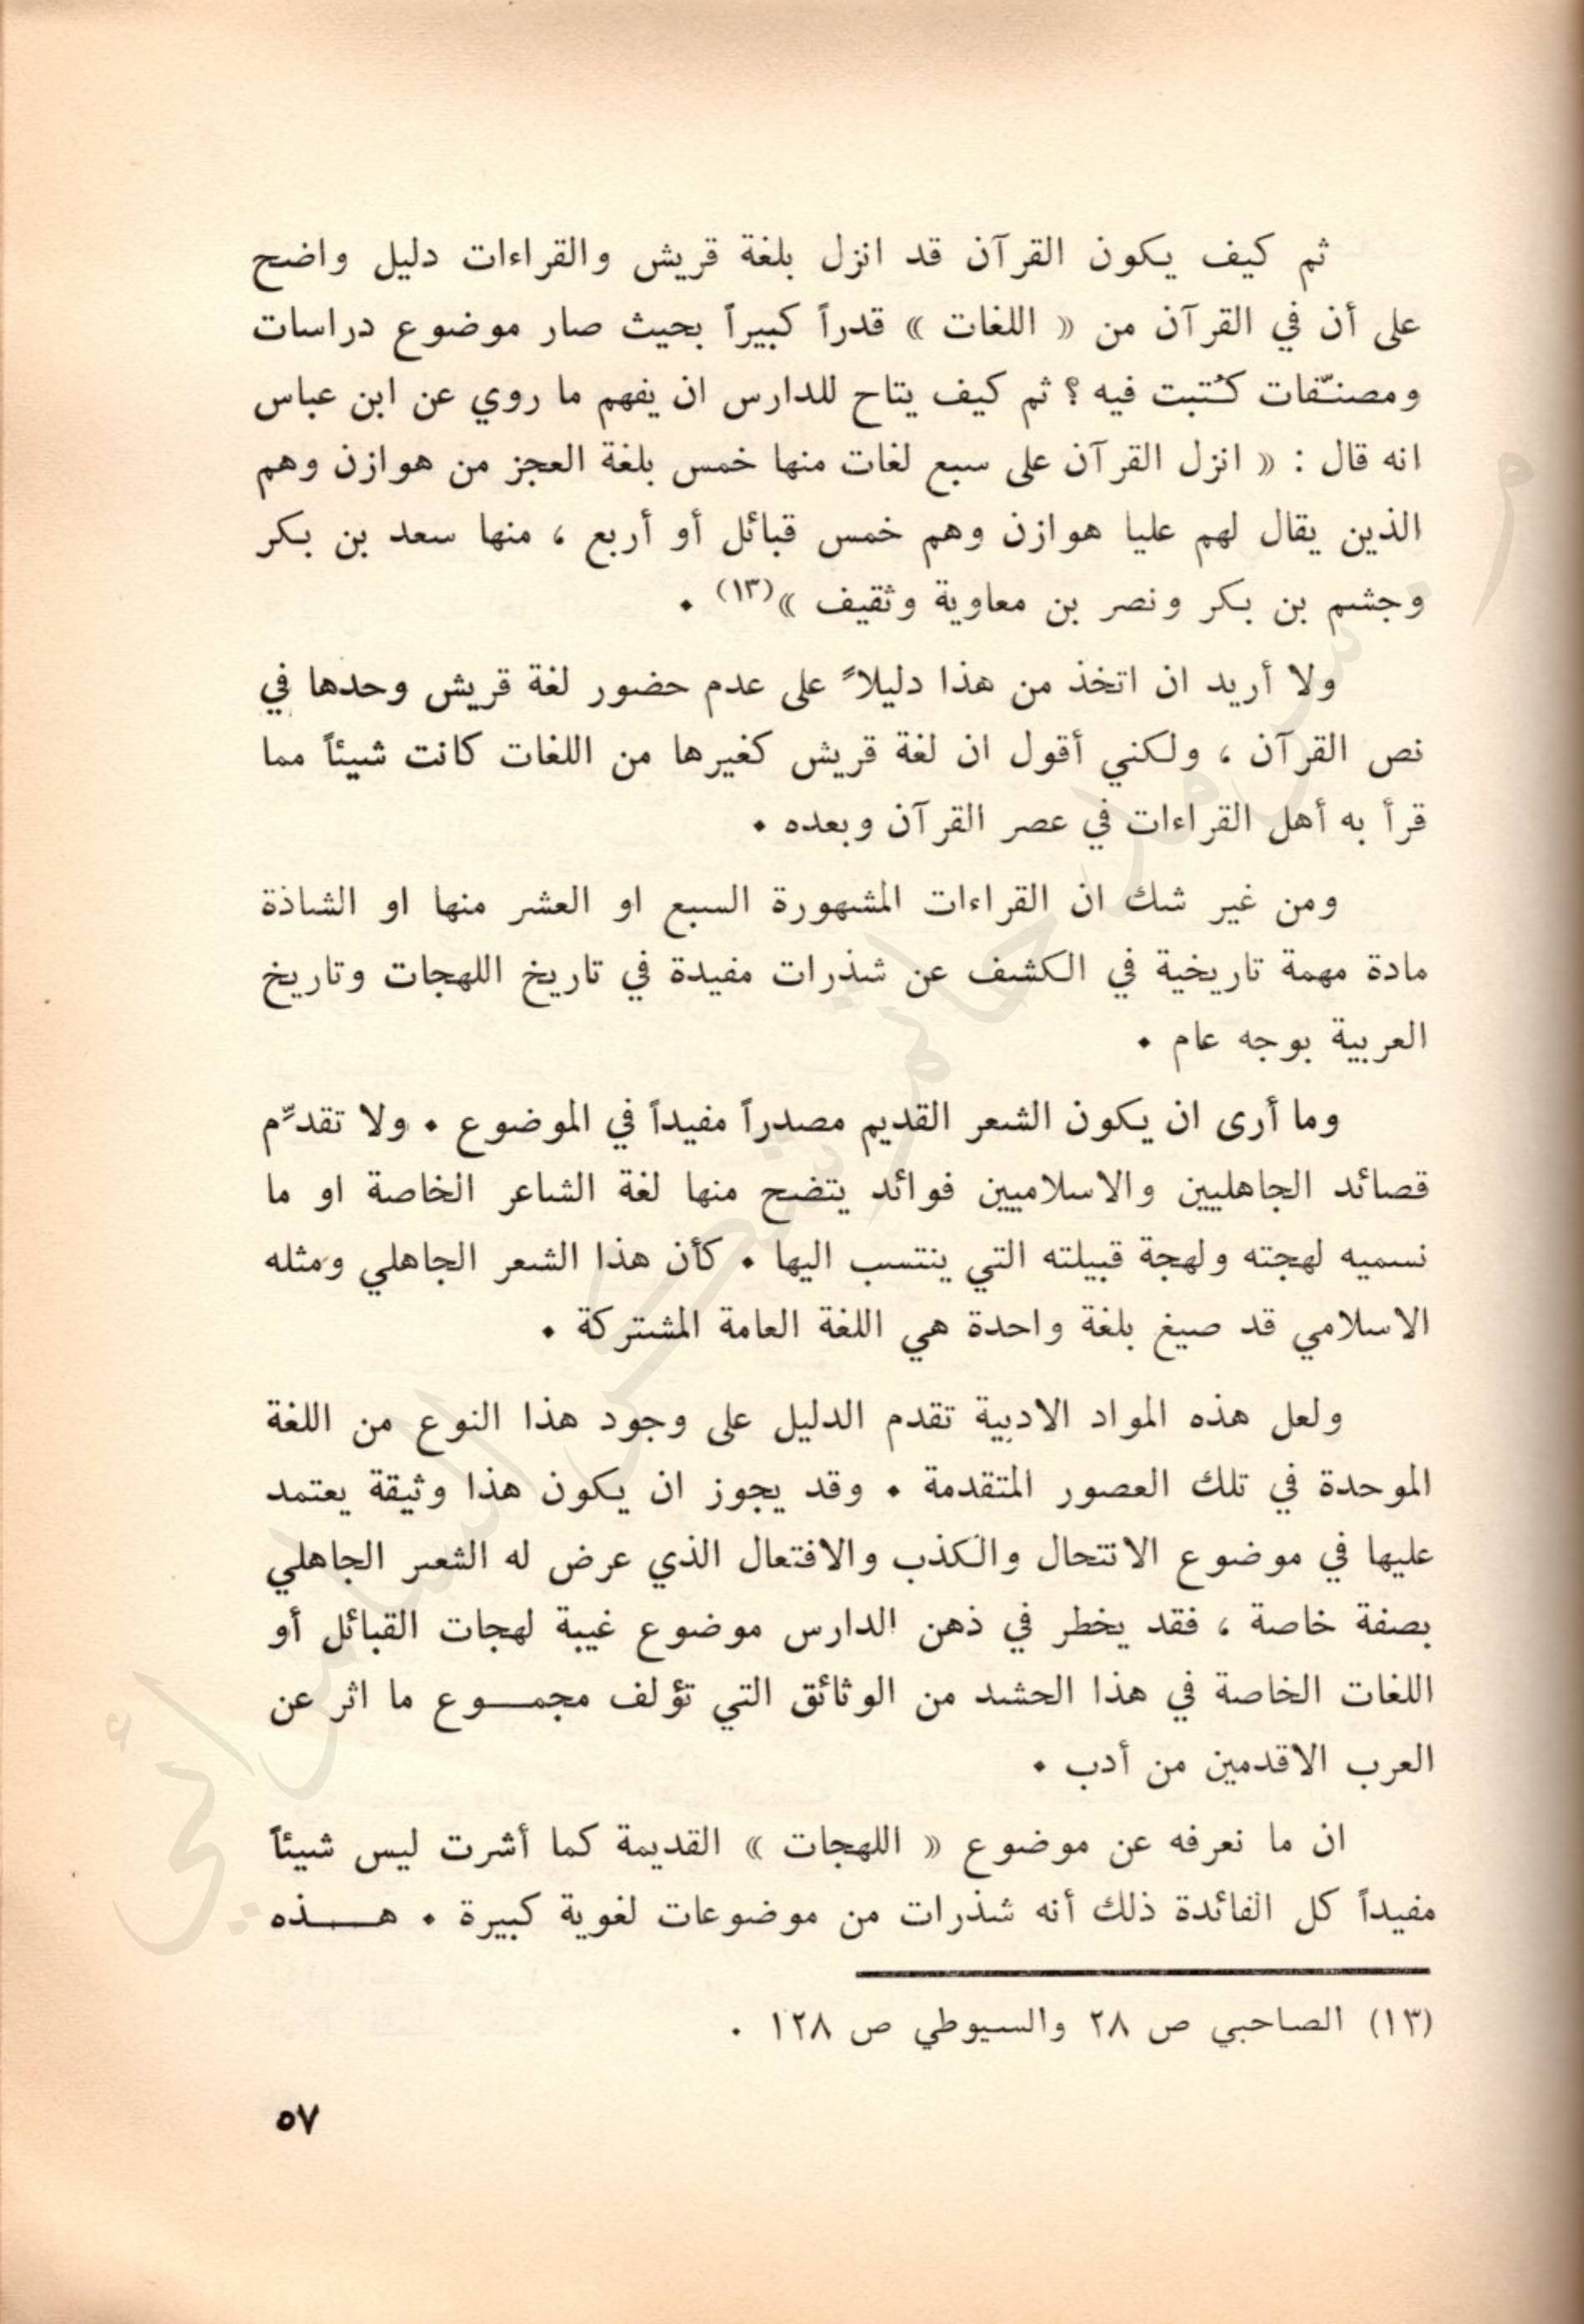 ثم كيف يكون القرآن قد انزل بلغة قريش والقراءات دليل واضح
على أن في القرآن من « اللغات » قدراً كبيراً بحيث صار موضوع دراسات
ومصنّفات كُتبت فيه ؟ ثم كيف يتاح للدارس ان يفهم ما روي عن ابن عباس
انه قال : « انزل القرآن على سبع لغات منها خمس بلغة العجز من هوازن وهم
الذين يقال لهم عليا هوازن وهم خمس قبائل أو أربع ، منها سعد بن بكر
وجشم بن بكر ونصر بن معاوية وثقيف »(١٣) .
ولا أريد ان اتخذ من هذا دليلاً على عدم حضور لغة قريش وحدها في
نص القرآن ، ولكني أقول ان لغة قريش كغيرها من اللغات كانت شيئاً مما
قرأ به أهل القراءات في عصر القرآن وبعده .
ومن غير شك ان القراءات المشهورة السبع او العشر منها او الشاذة
مادة مهمة تاريخية في الكشف عن شذرات مفيدة في تاريخ اللهجات وتاريخ
العربية بوجه عام .
وما أرى ان يكون الشعر القديم مصدراً مفيداً في الموضوع . ولا تقدّم
قصائد الجاهليين والاسلاميين فوائد يتضح منها لغة الشاعر الخاصة او ما
نسميه لهجته ولهجة قبيلته التي ينتسب اليها . كأن هذا الشعر الجاهلي ومثله
الاسلامي قد صيغ بلغة واحدة هي اللغة العامة المشتركة .
ولعل هذه المواد الادبية تقدم الدليل على وجود هذا النوع من اللغة
الموحدة في تلك العصور المتقدمة . وقد يجوز ان يكون هذا وثيقة يعتمد
عليها في موضوع الانتحال والكذب والافتعال الذي عرض له الشعر الجاهلي
بصفة خاصة ، فقد يخطر في ذهن الدارس موضوع غيبة لهجات القبائل أو
اللغات الخاصة في هذا الحشد من الوثائق التي تؤلف مجمـــوع ما اثر عن
العرب الاقدمين من أدب .
ان ما نعرفه عن موضوع « اللهجات » القديمة كما أشرت ليس شيئاً
مفيداً كل الفائدة ذلك أنه شذرات من موضوعات لغوية كبيرة . هـــذه
(١٣) الصاحبي ص ٢٨ والسيوطي ص ١٢٨ .
٥٧